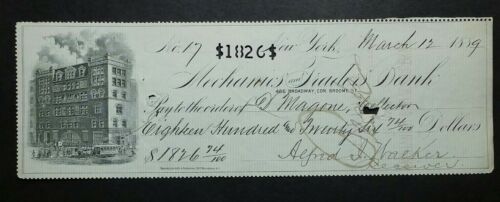 No. 17 $1826$ New York, March 12 1889
Mechanics and Traders Bank
486 BROADWAY, COR. BROOME ST.
Pay to the order of D. Magone,
Eighteen Hundred and Twenty Six 74/100 Dollars
$1826 74/100 Alfred Walker